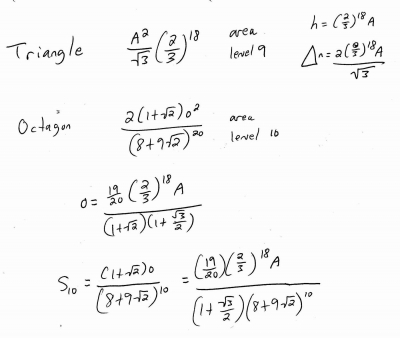 Triangle A²/√3 (2/3)^18 area level 9 h = (2/3)^18 A
Δn = 2(2/3)^18 A / √3
Octagon 2(1+√2)o² / (8+9√2)^20 area level 10
o = 19/20 (2/3)^18 A / (1+√2)(1+√3/2)
S₁₀ = (1+√2)o / (8+9√2)^10 = (19/20)(2/3)^18 A / (1+√3/2)(8+9√2)^10